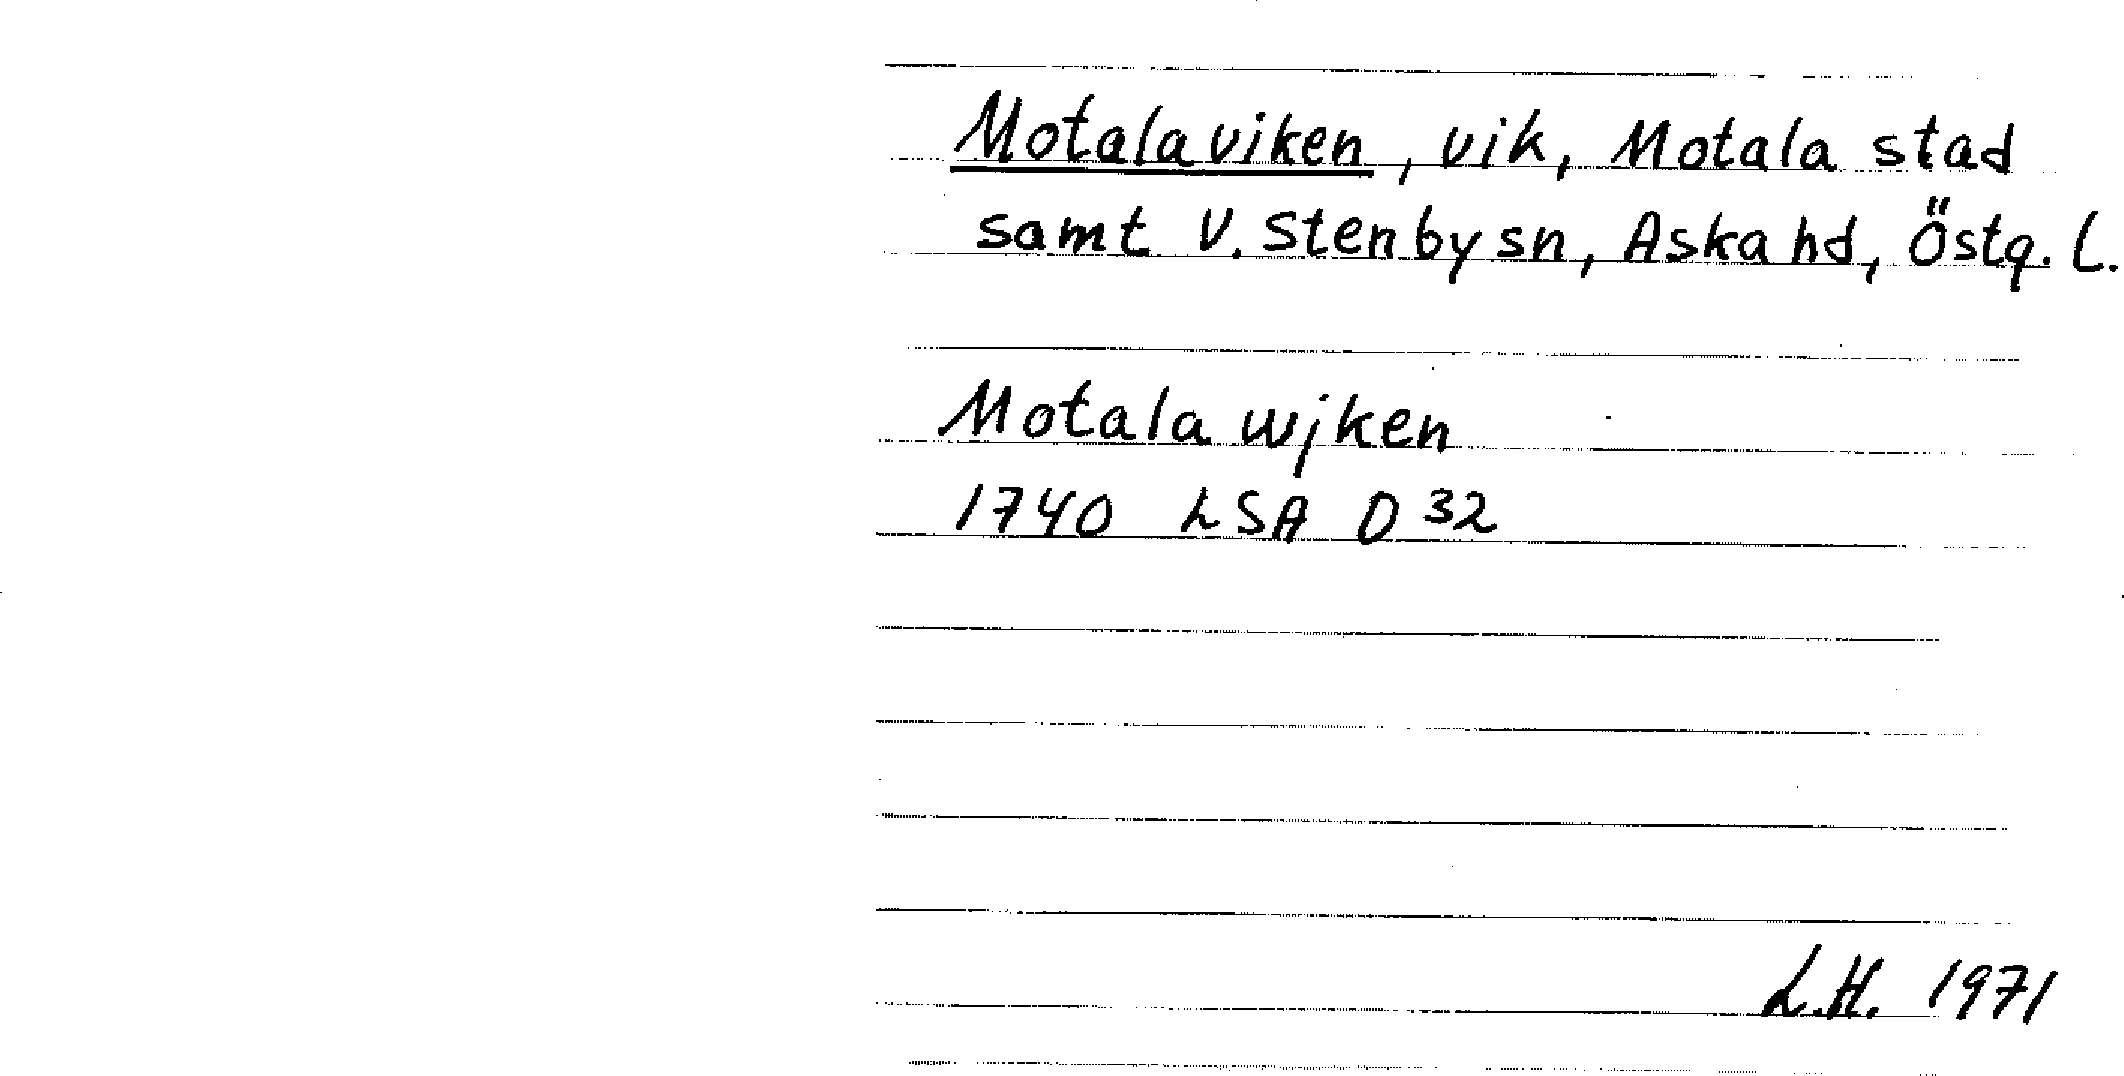 Motalaviken, vik, Motala stad
samt V. Stenby sn, Aska hd, Östg. L.
Motala wjken
1740 LSA D 32
L.H. 1971